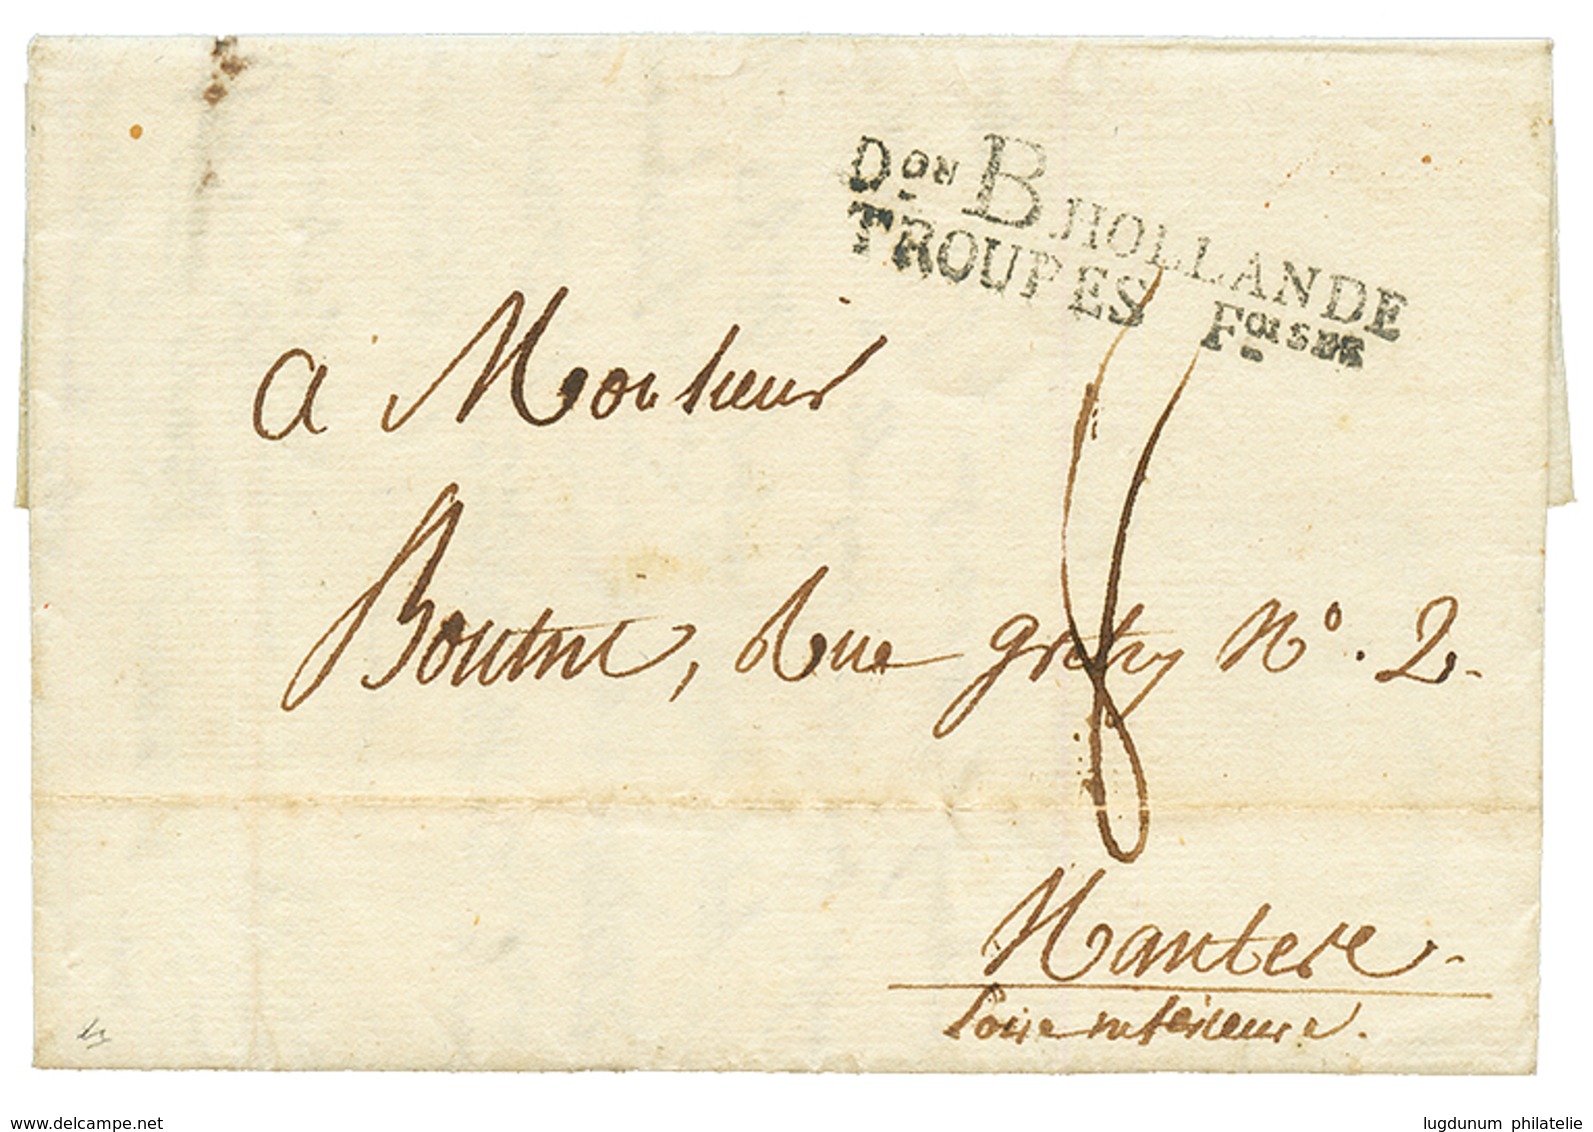 Don B. HOLLANDE
TROUPES Foises
a Monsieur
Boutni, Rue gretry No. 2.
Nantes.
Loire inférieure.
www.delcampe.net
lugdunum philatelie